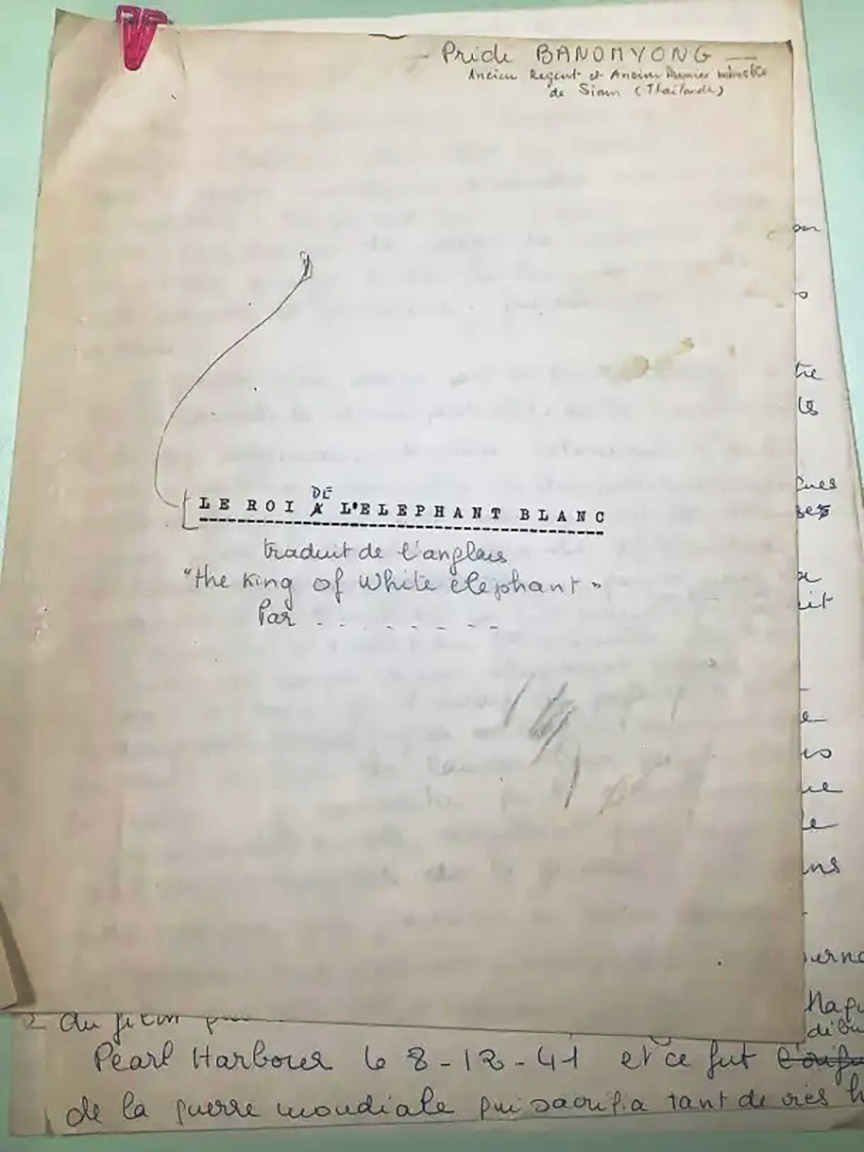 — Pride BANOMYONG —
Ancien Regent et Ancien Premier ministre
de Siam (Thaïlande)
DE
LE ROI A L'ELEPHANT BLANC
traduit de l'anglais
"the King of White elephant"
Par - - - - - - - -
tre
ques
ait
ns
du film
Pearl Harbour le 8-12-41 et ce fut
de la guerre mondiale qui sacrifia tant de vies h